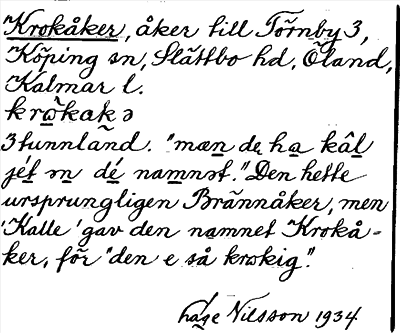 Krokåker, åker till Törnby 3,
Köping sn, Slättbo hd, Öland,
Kalmar l.
krō̱ka̱kə
3 tunnland. "mæn de̱ ha̱ kâl
jét ən dé namnət." Den hette
ursprungligen Brännåker, men
'Kalle' gav den namnet Krokå-
ker, för "den e så krokig".
Nilsson 1934